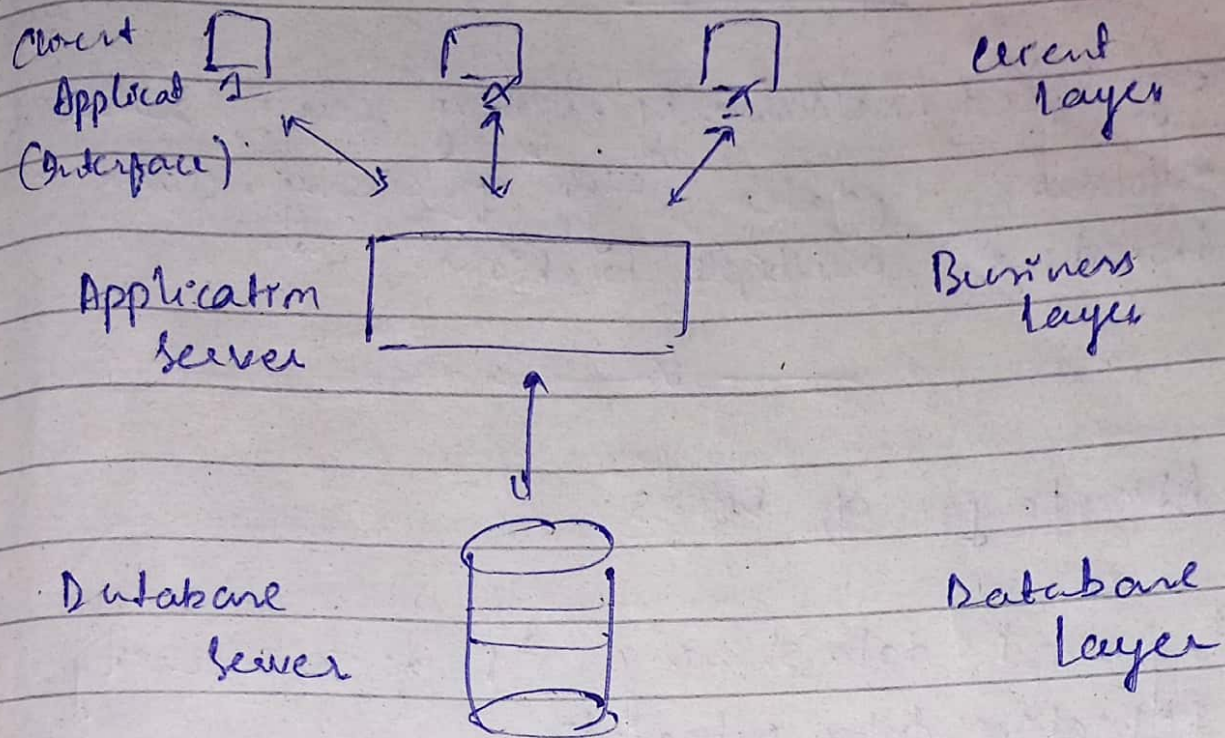 Client
Applicat 1
(Interface)
Client
Layer
Application
Server
Business
Layer
Database
Server
Database
Layer